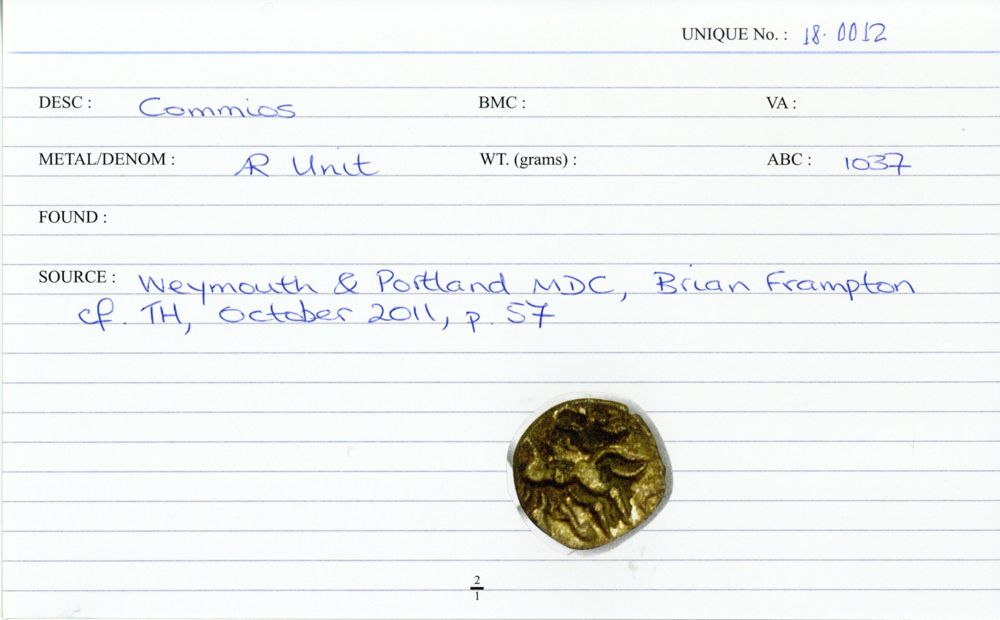 UNIQUE No. : 18.0012
DESC : Commios BMC : VA :
METAL/DENOM : AR Unit WT. (grams) : ABC : 1037
FOUND :
SOURCE : Weymouth & Portland MDC, Brian Frampton
cf. TH, October 2011, p. 57
2
1